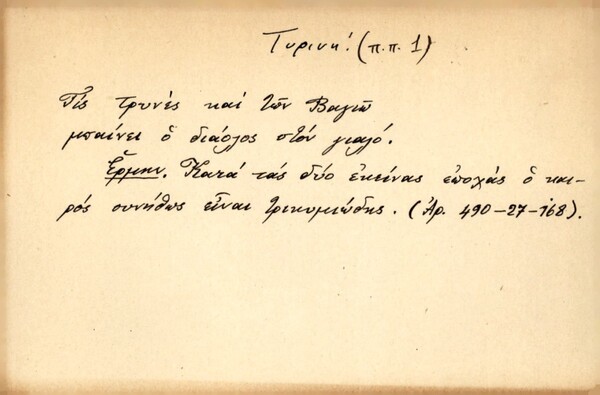 Τυρινή! (π.π. 1)
Τίς τρυνές καί τῶν Βαγιῶ
μπαίνει ὁ διάολος στόν γιαλό.
Ἑρμην. Κατά τάς δύο ἐκείνας ἐποχάς ὁ και-
ρός συνήθως εἶναι τρικυμιώδης. (Ἀρ. 490-27-168).